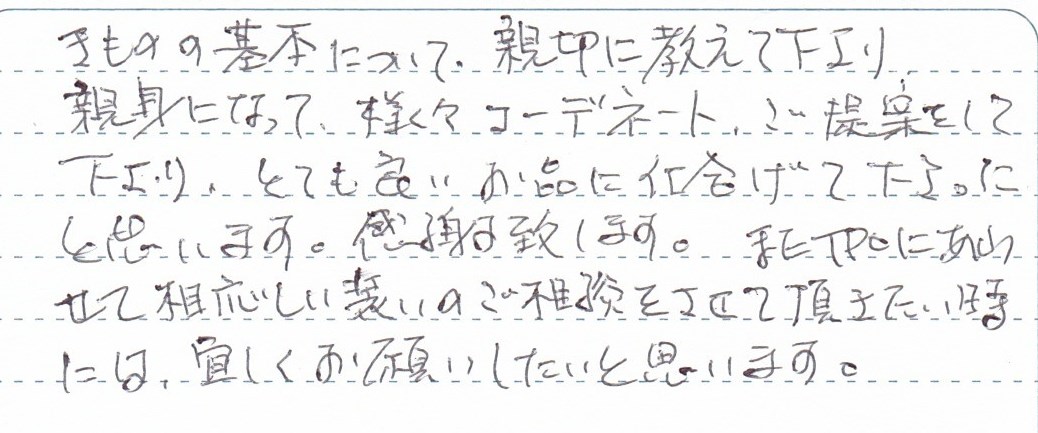 きものの基本について、親切に教えて下さり、
親身になって、様々コーデネート、ご提案をして
下さり、とても良いお品に仕上げて下さった
と思います。感謝致します。またTPOにあわ
せて相応しい装いのご相談をさせて頂きたい時
には、宜しくお願いしたいと思います。